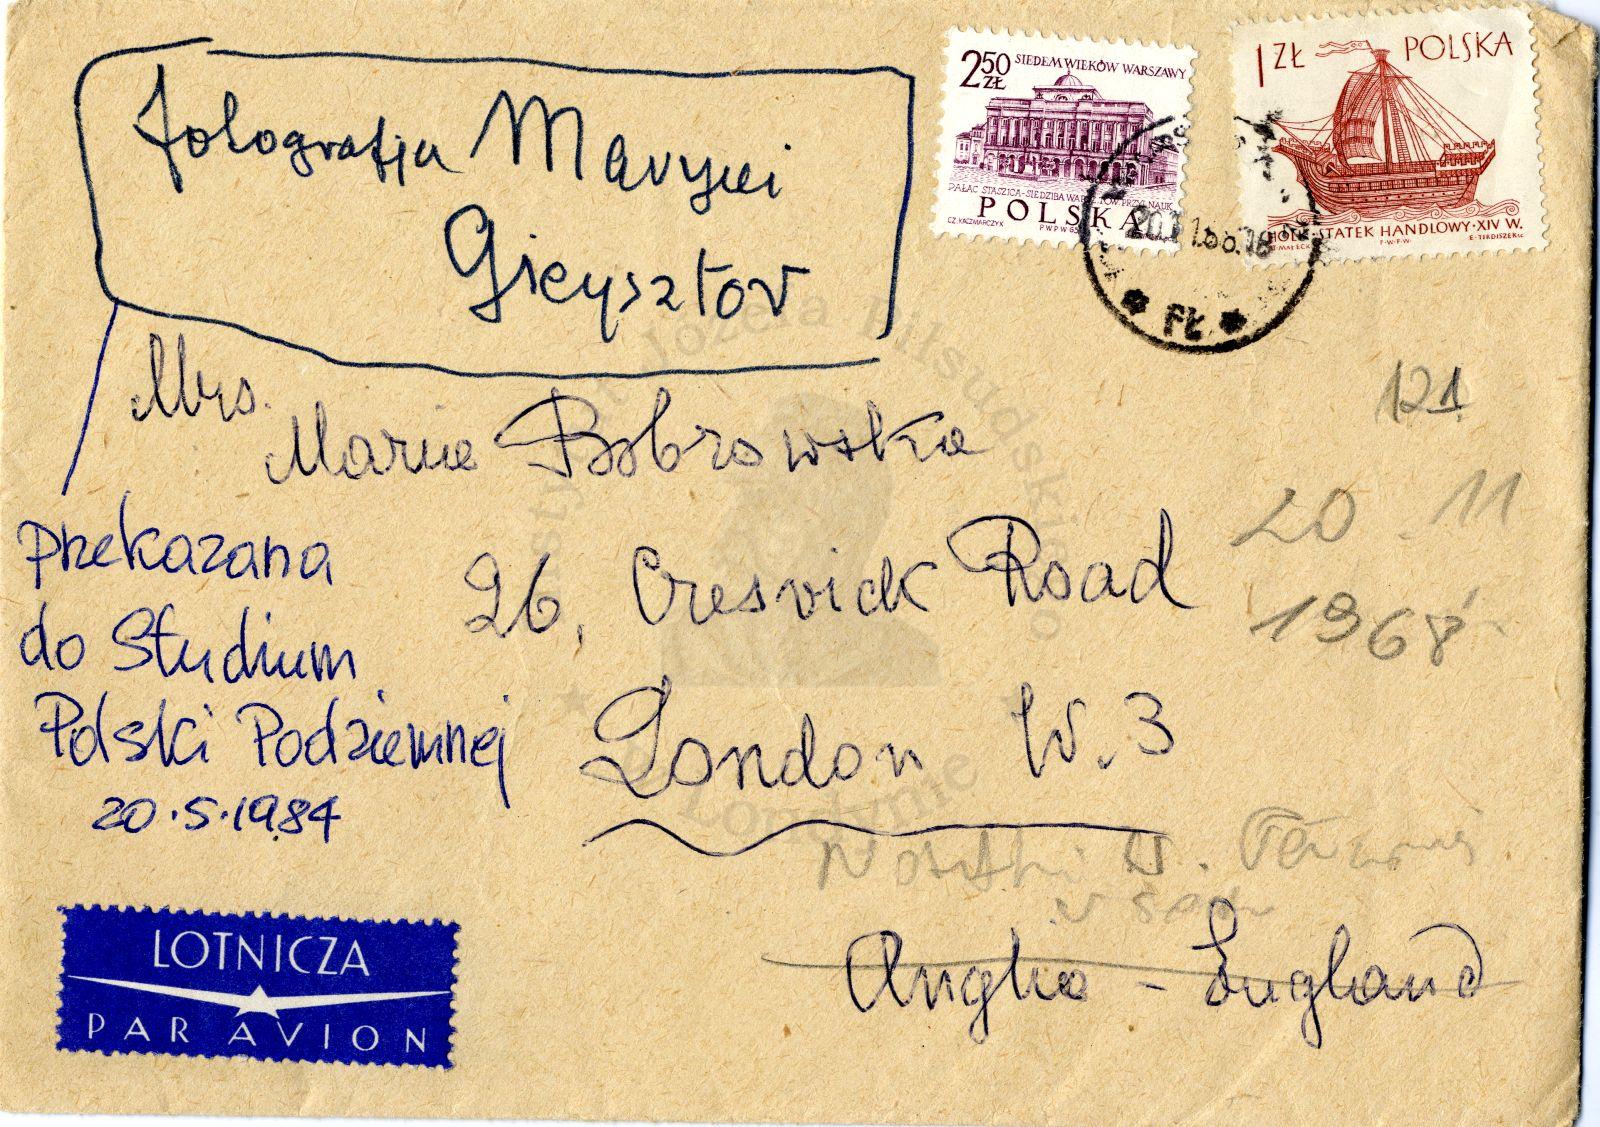 fotografja Maryni
Gieysztor
2 50 ZŁ
SIEDEM WIEKÓW WARSZAWY
PAŁAC STASZICA-SIEDZIBA WARSZ.TOW.PRZYJ.NAUK
POLSKA
CZ.KACZMARCZYK
PWPW 65
1 ZŁ POLSKA
HOLK-STATEK HANDLOWY·XIV W.
P.W.P.W.
FŁ
Mrs.
Maria Bobrowska
26, Creswick Road
London W.3
Anglia - England
121
20.11
1968
przekazana
do Studium
Polski Podziemnej
20.5.1984
LOTNICZA
PAR AVION
Instytut Józefa Piłsudskiego
w Londynie